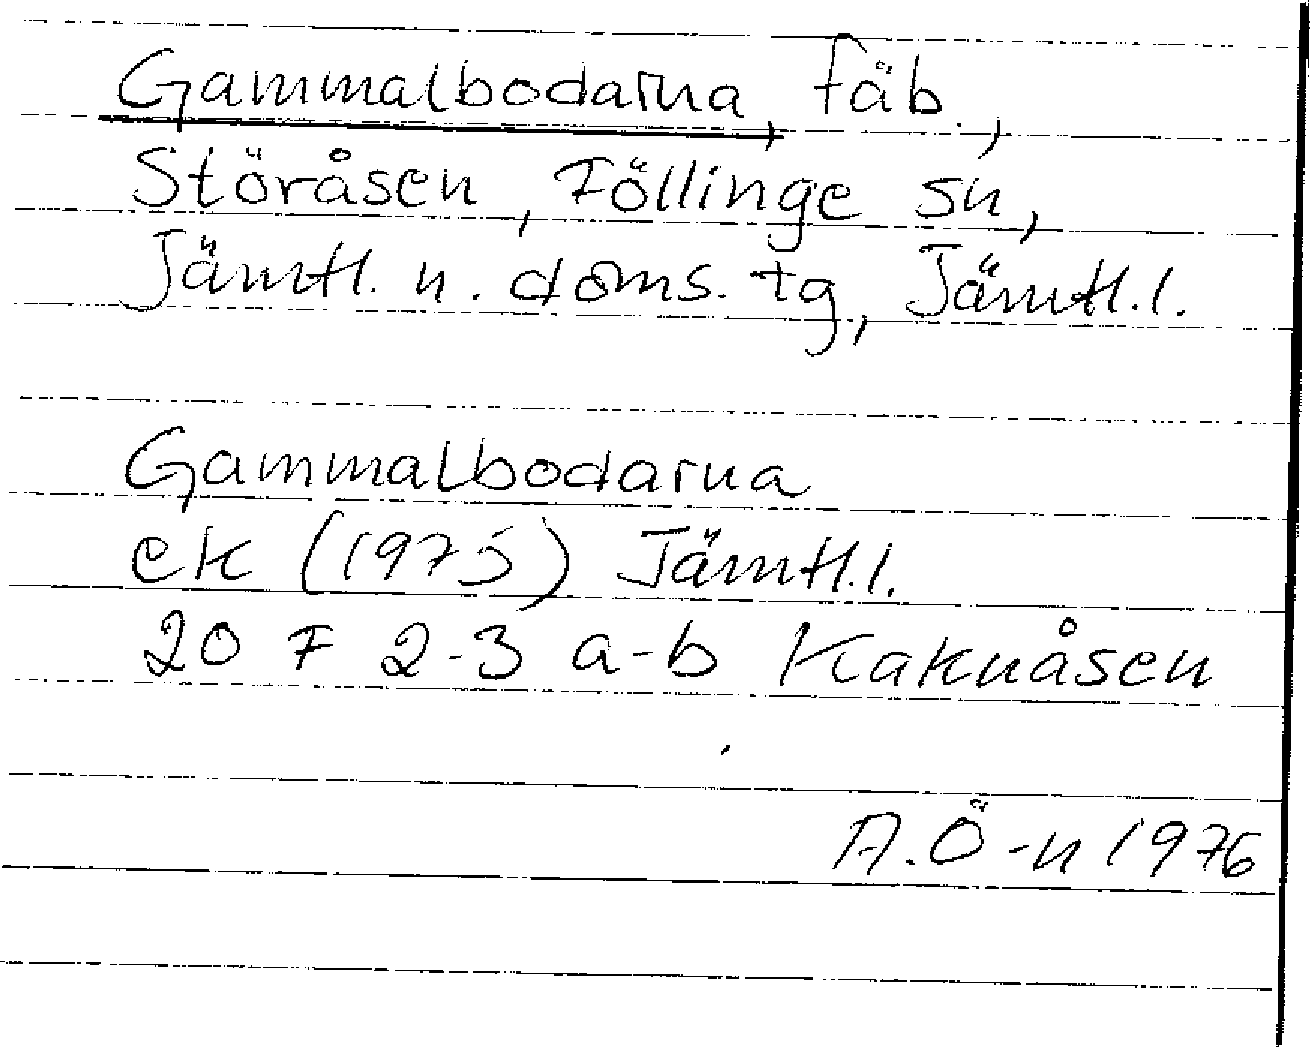 Gammalbodarna, fäb.,
Störåsen, Föllinge sn,
Jämtl. n. doms. tg, Jämtl. l.
Gammalbodarna
ek (1975) Jämtl. l.
20 F 2-3 a-b Kaknåsen
A. Ö-n 1976